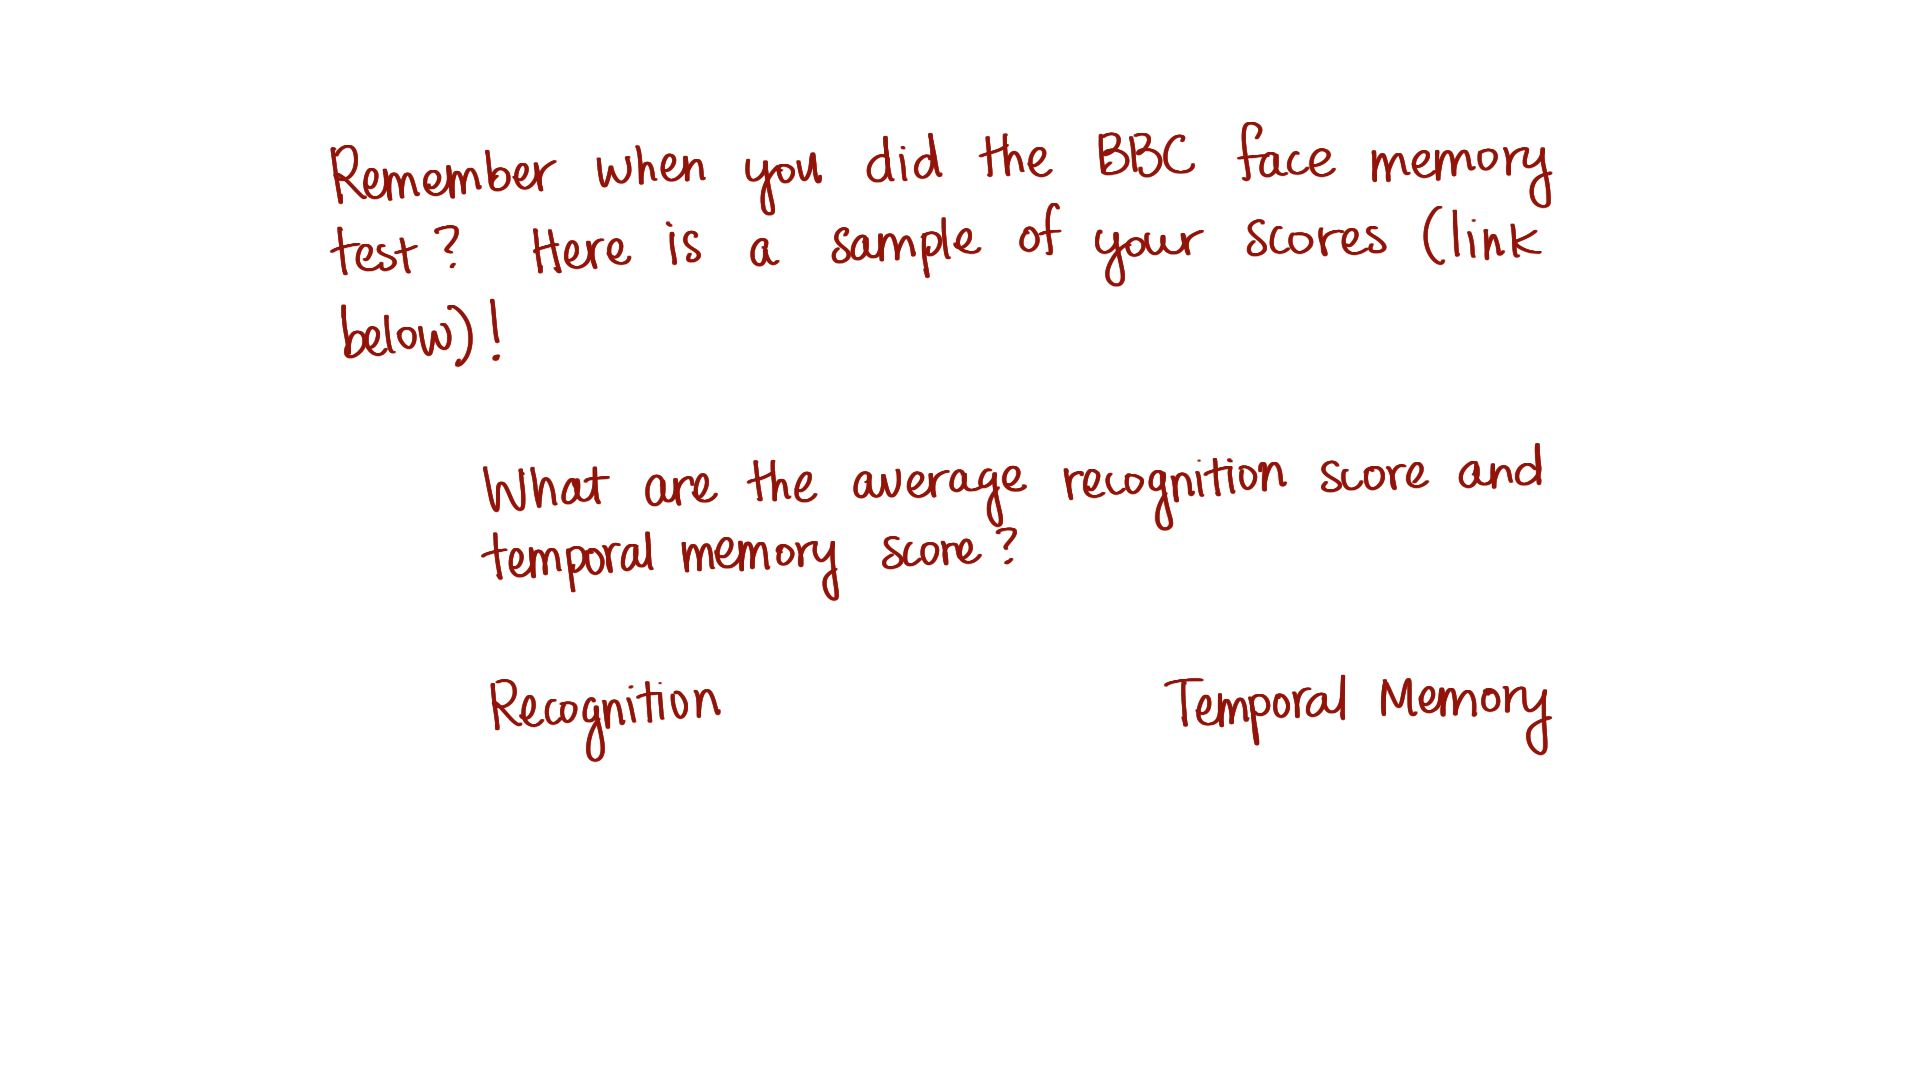 Remember when you did the BBC face memory
test? Here is a sample of your scores (link
below)!
What are the average recognition score and
temporal memory score?
Recognition Temporal Memory